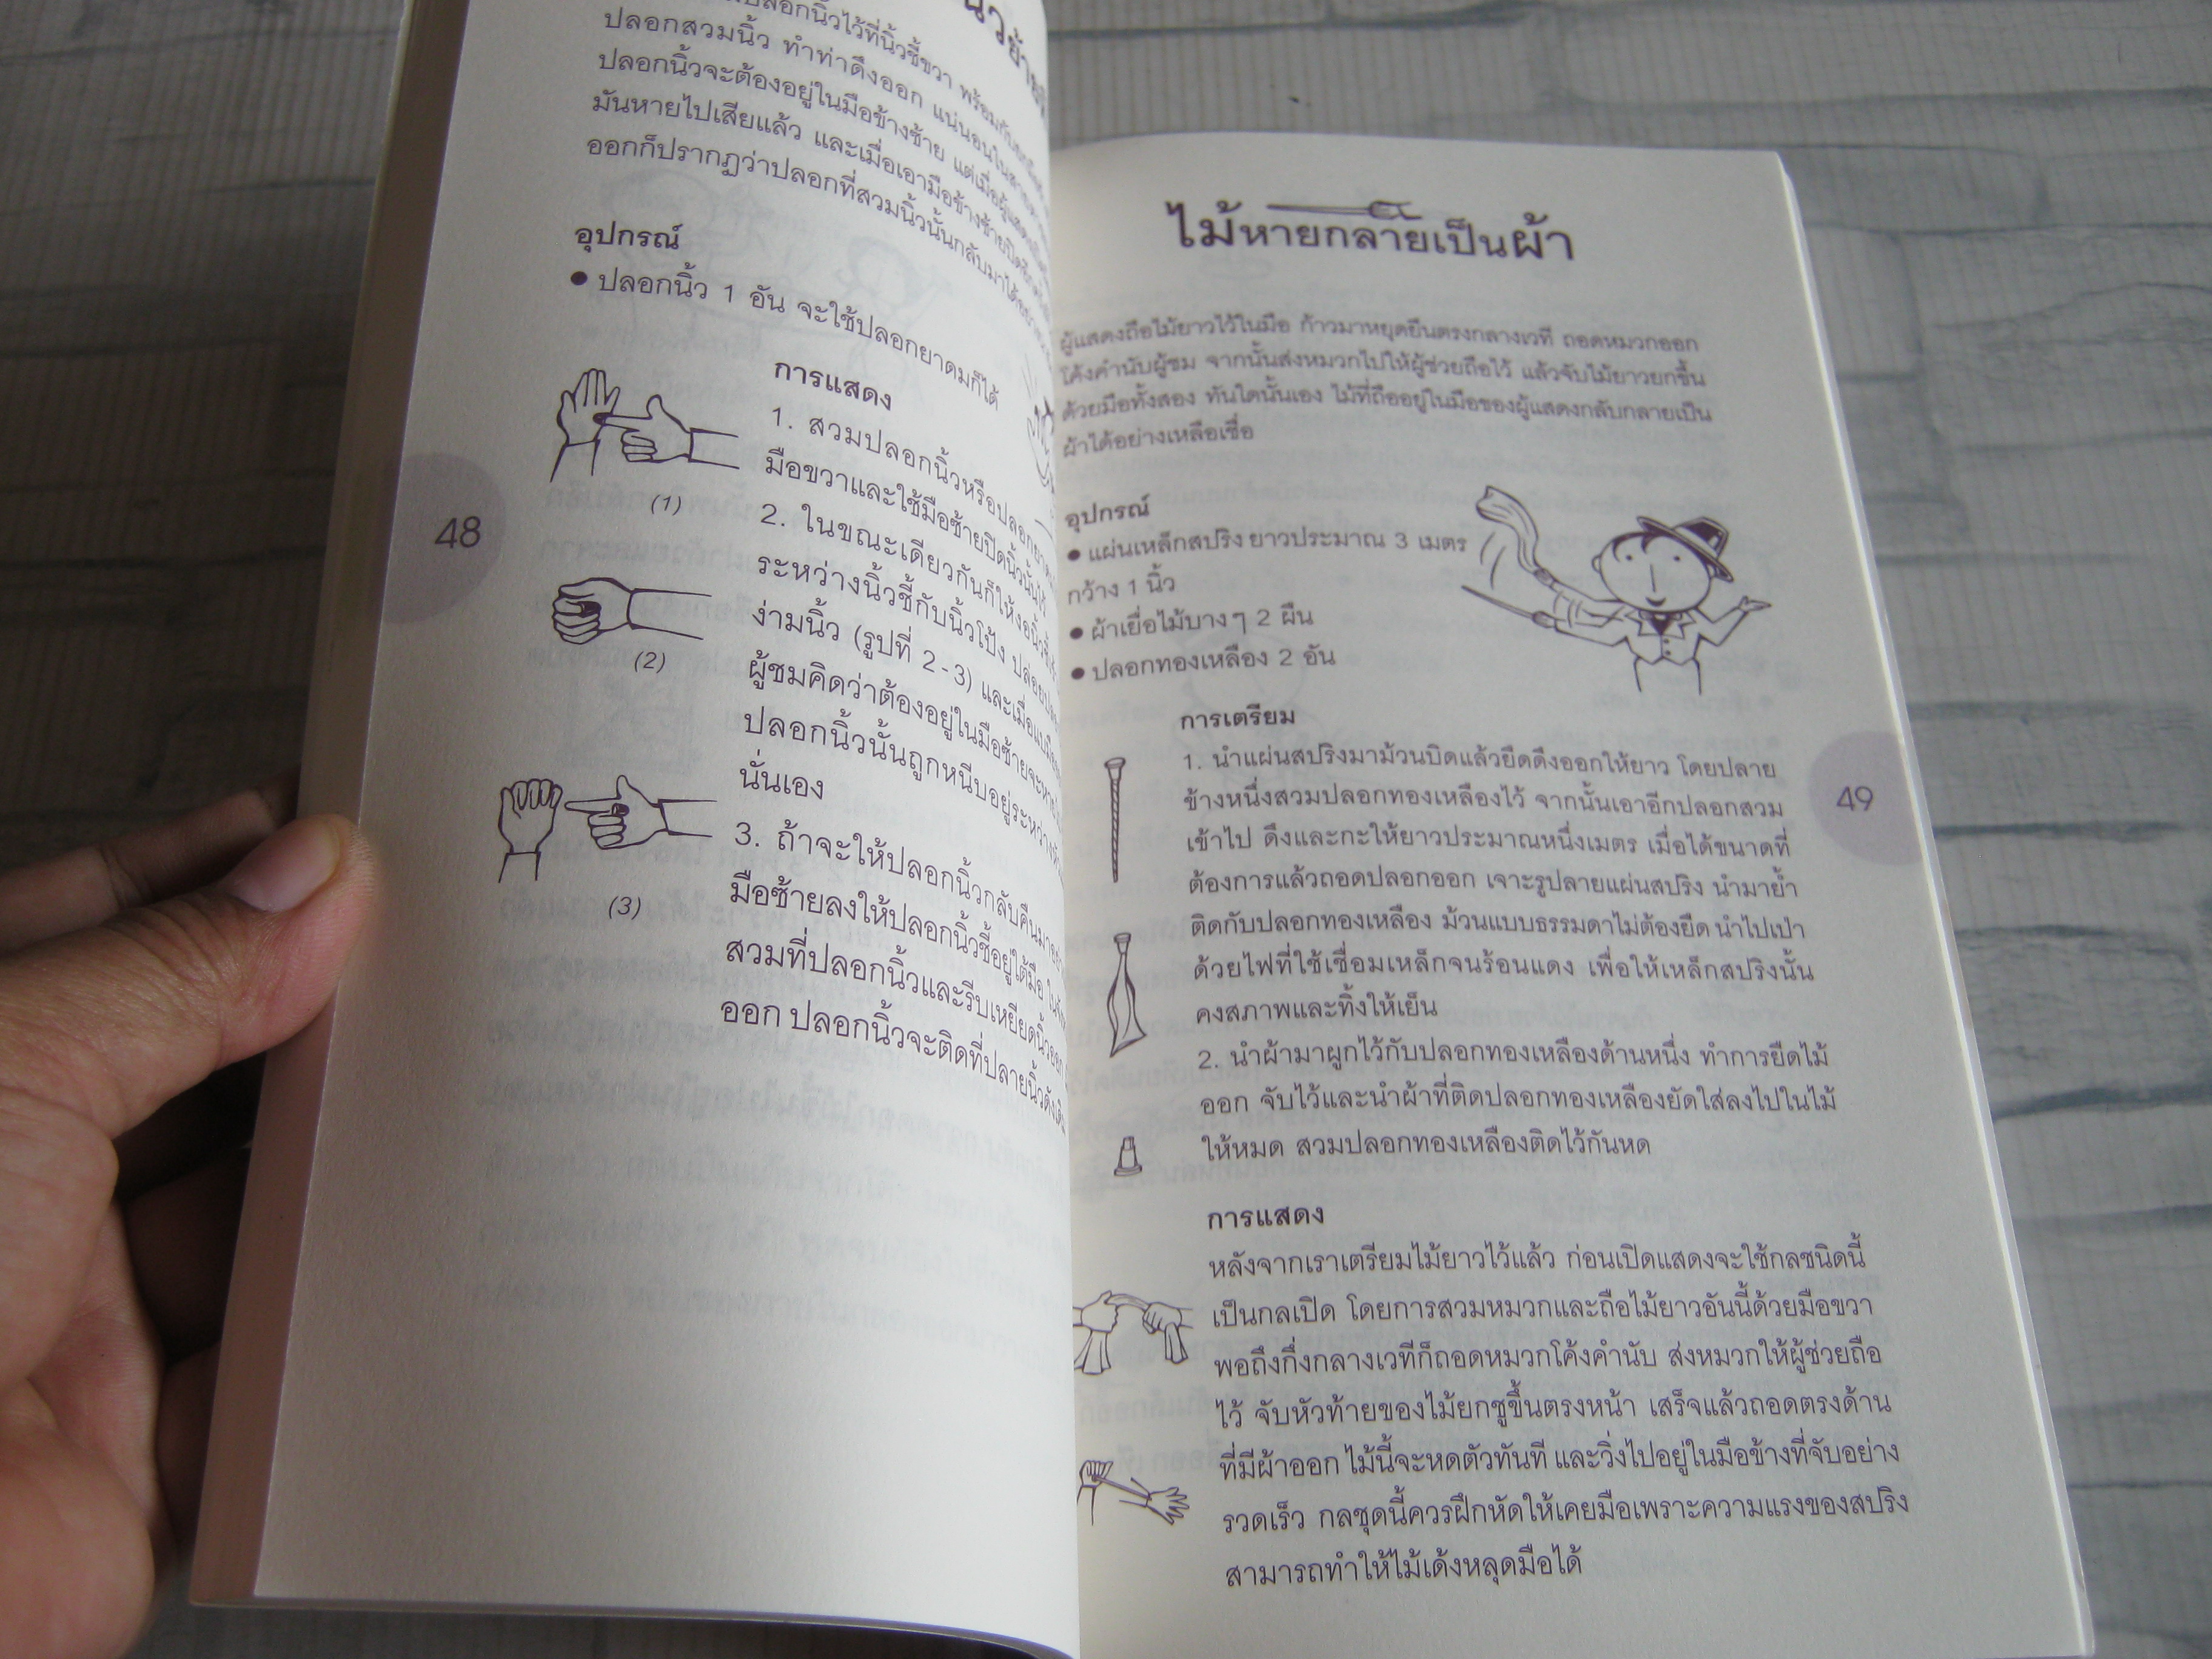 ปลอกนิ้วไว้ที่นิ้วชี้ขวา พร้อมกับ
ปลอกสวมนิ้ว ทำท่าดึงออก แน่นอนใน
ปลอกนิ้วจะต้องอยู่ในมือข้างซ้าย แต่เมื่อผู้แสดง
มันหายไปเสียแล้ว และเมื่อเอามือข้างซ้ายปิด
ออกก็ปรากฏว่าปลอกที่สวมนิ้วนั้นกลับมาได้
อุปกรณ์
● ปลอกนิ้ว 1 อัน จะใช้ปลอกยาดมก็ได้
การแสดง
1. สวมปลอกนิ้วหรือปลอกยาดม
มือขวาและใช้มือซ้ายปิดนิ้วนั้นไว้
2. ในขณะเดียวกันก็ให้งอนิ้วชี้
ระหว่างนิ้วชี้กับนิ้วโป้ง ปล่อย
ง่ามนิ้ว (รูปที่ 2-3) และเมื่อแบมือ
ผู้ชมคิดว่าต้องอยู่ในมือซ้ายจะหาย
ปลอกนิ้วนั้นถูกหนีบอยู่ระหว่าง
นั่นเอง
3. ถ้าจะให้ปลอกนิ้วกลับคืนมา
มือซ้ายลงให้ปลอกนิ้วชี้อยู่ใต้มือ
สวมที่ปลอกนิ้วและรีบเหยียดนิ้วออก
ออก ปลอกนิ้วจะติดที่ปลายนิ้วดังเดิม
(1)
(2)
(3)
48
ไม้หายกลายเป็นผ้า
ผู้แสดงถือไม้ยาวไว้ในมือ ก้าวมาหยุดยืนตรงกลางเวที ถอดหมวกออก
โค้งคำนับผู้ชม จากนั้นส่งหมวกไปให้ผู้ช่วยถือไว้ แล้วจับไม้ยาวยกขึ้น
ด้วยมือทั้งสอง ทันใดนั้นเอง ไม้ที่ถืออยู่ในมือของผู้แสดงกลับกลายเป็น
ผ้าได้อย่างเหลือเชื่อ
อุปกรณ์
● แผ่นเหล็กสปริง ยาวประมาณ 3 เมตร
กว้าง 1 นิ้ว
● ผ้าเยื่อไม้บางๆ 2 ผืน
● ปลอกทองเหลือง 2 อัน
การเตรียม
1. นำแผ่นสปริงมาม้วนบิดแล้วยืดดึงออกให้ยาว โดยปลาย
ข้างหนึ่งสวมปลอกทองเหลืองไว้ จากนั้นเอาอีกปลอกสวม
เข้าไป ดึงและกะให้ยาวประมาณหนึ่งเมตร เมื่อได้ขนาดที่
ต้องการแล้วถอดปลอกออก เจาะรูปลายแผ่นสปริง นำมาย้ำ
ติดกับปลอกทองเหลือง ม้วนแบบธรรมดาไม่ต้องยืด นำไปเป่า
ด้วยไฟที่ใช้เชื่อมเหล็กจนร้อนแดง เพื่อให้เหล็กสปริงนั้น
คงสภาพและทิ้งให้เย็น
2. นำผ้ามาผูกไว้กับปลอกทองเหลืองด้านหนึ่ง ทำการยืดไม้
ออก จับไว้และนำผ้าที่ติดปลอกทองเหลืองยัดใส่ลงไปในไม้
ให้หมด สวมปลอกทองเหลืองติดไว้กันหด
การแสดง
หลังจากเราเตรียมไม้ยาวไว้แล้ว ก่อนเปิดแสดงจะใช้กลชนิดนี้
เป็นกลเปิด โดยการสวมหมวกและถือไม้ยาวอันนี้ด้วยมือขวา
พอถึงกึ่งกลางเวทีก็ถอดหมวกโค้งคำนับ ส่งหมวกให้ผู้ช่วยถือ
ไว้ จับหัวท้ายของไม้ยกชูขึ้นตรงหน้า เสร็จแล้วถอดตรงด้าน
ที่มีผ้าออก ไม้นี้จะหดตัวทันที และวิ่งไปอยู่ในมือข้างที่จับอย่าง
รวดเร็ว กลชุดนี้ควรฝึกหัดให้เคยมือเพราะความแรงของสปริง
สามารถทำให้ไม้เด้งหลุดมือได้
49